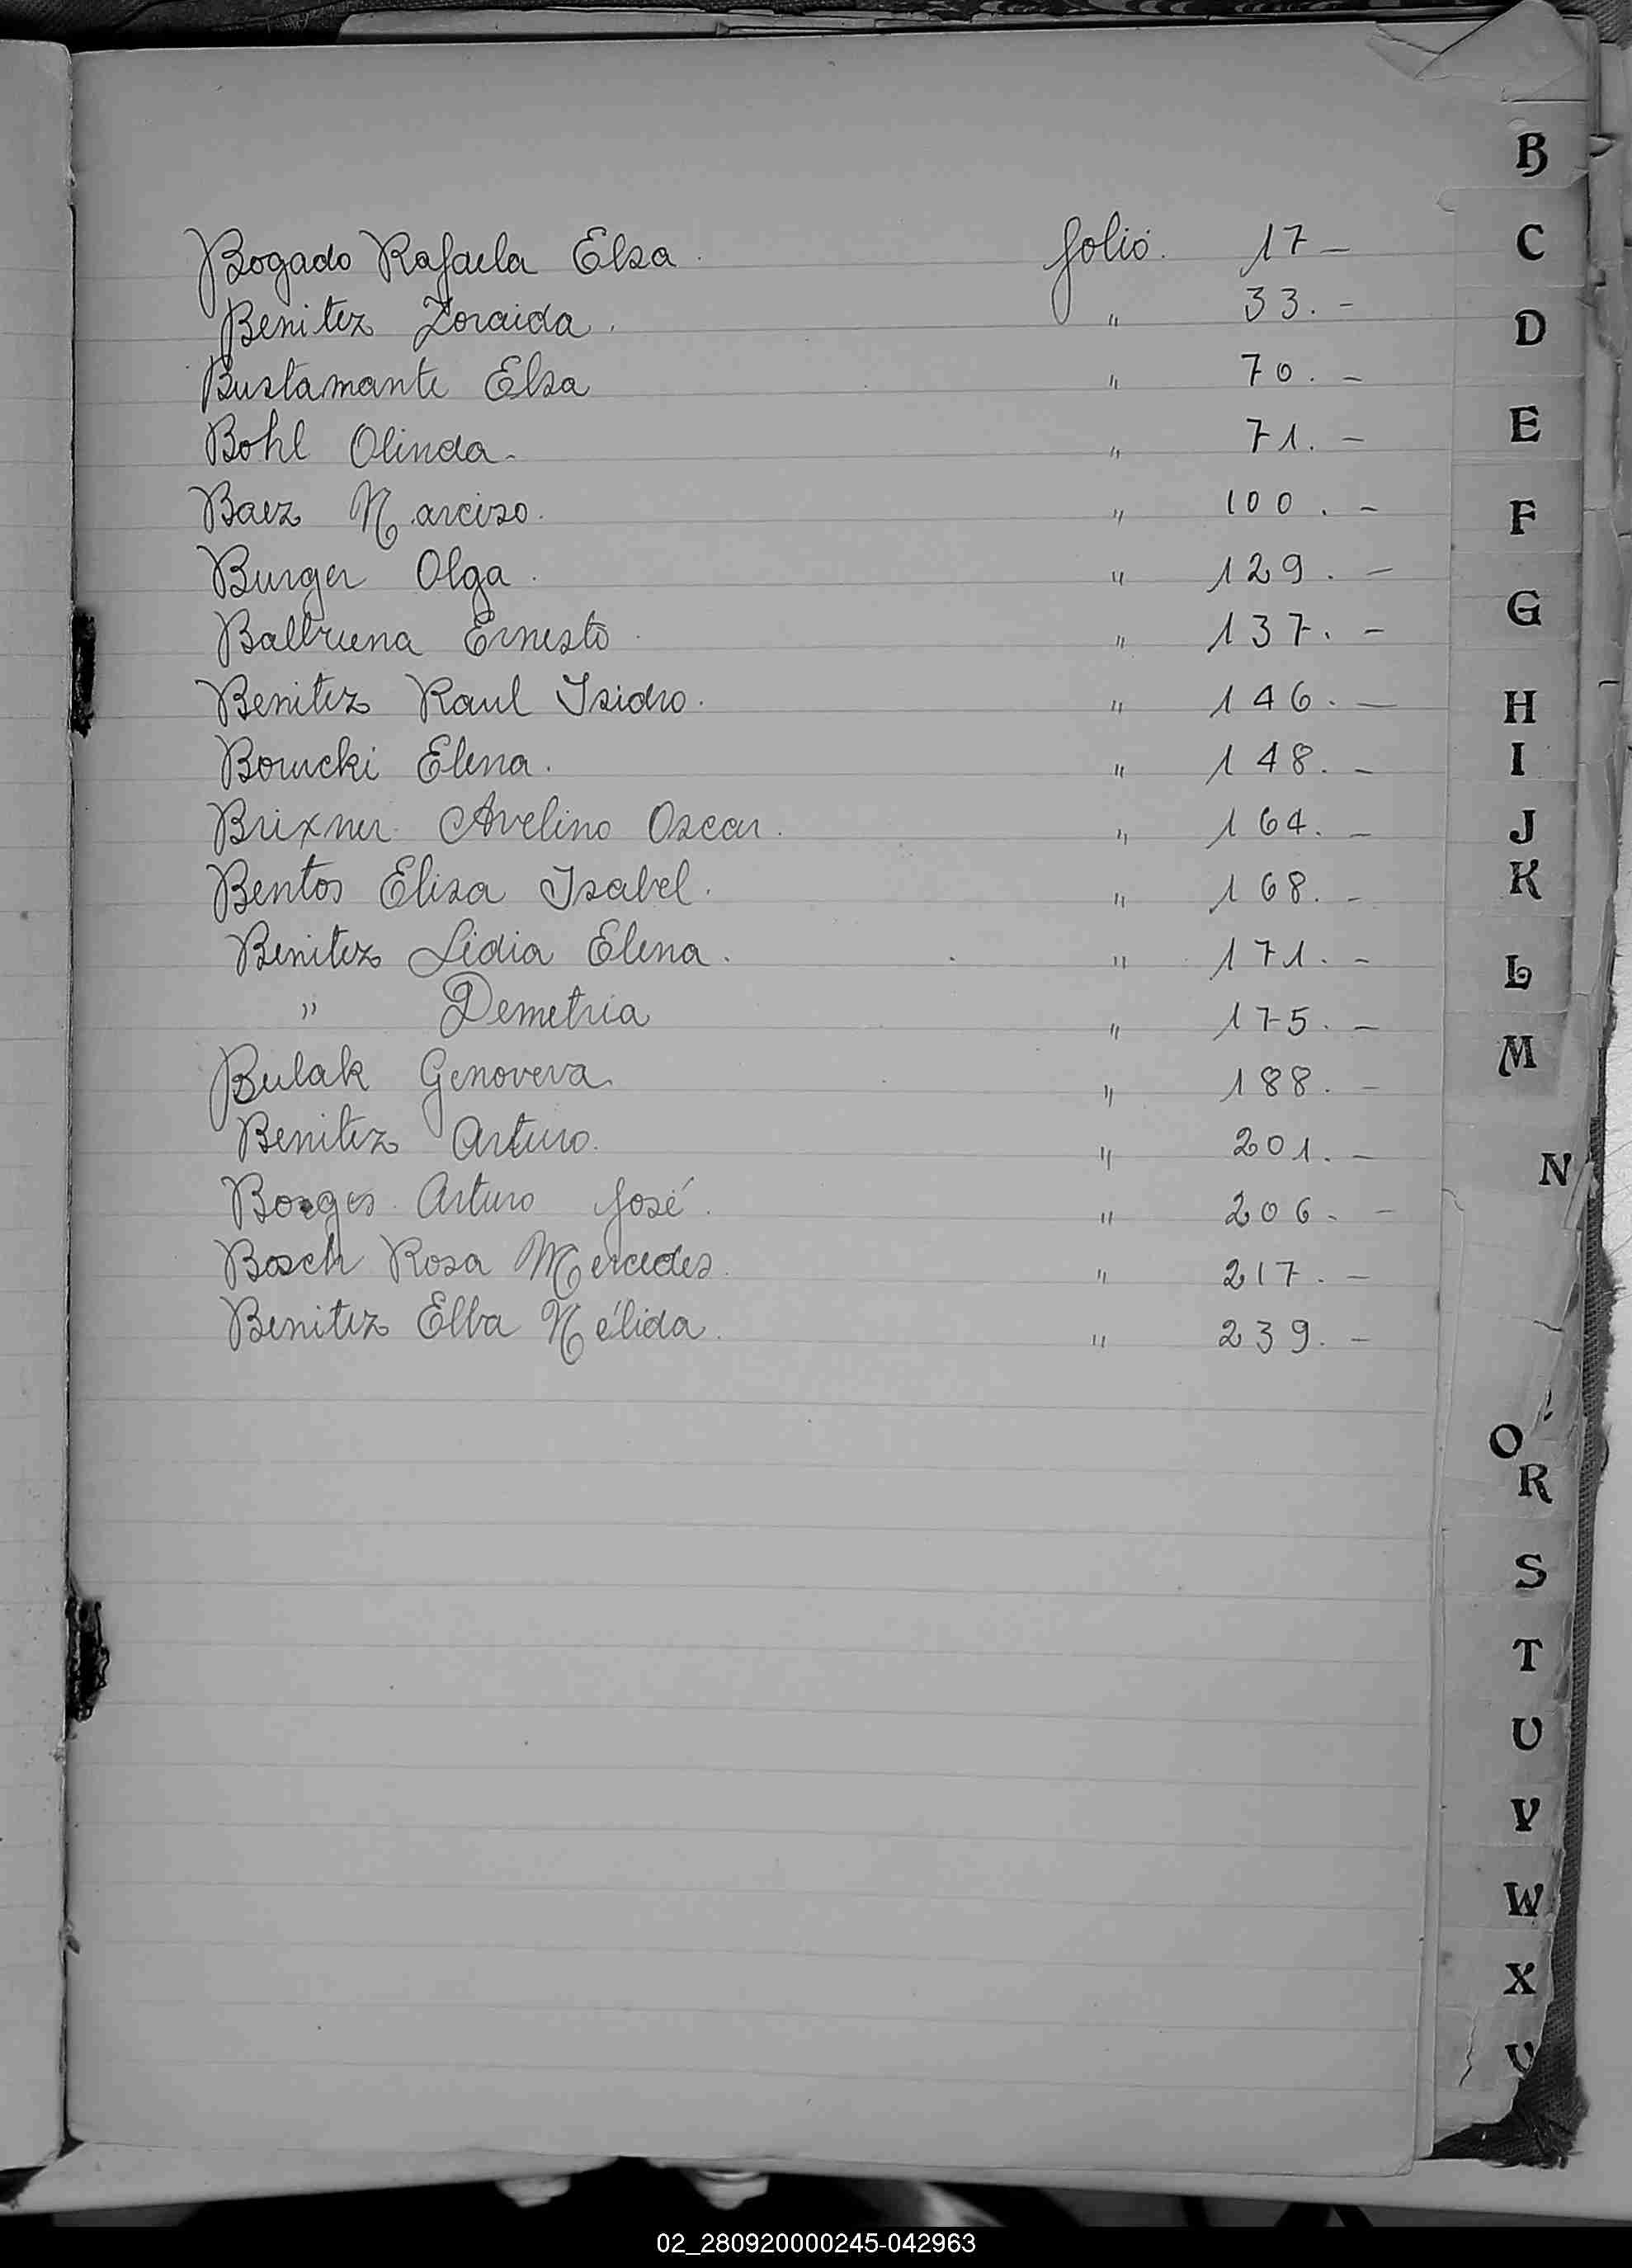 Bogado Rafaela Elsa. folio. 17 –
Benitez Zoraida. " 33. –
Bustamante Elsa " 70. –
Bohl Olinda. " 71. –
Baez Narciso. " 100. –
Burger Olga. " 129. –
Balbuena Ernesto. " 137. –
Benitez Raul Isidro. " 146. –
Borucki Elena. " 148. –
Brixner Avelino Oscar. " 164. –
Bentos Elisa Isabel. " 168. –
Benitez Lidia Elena. " 171. –
" Demetria " 175. –
Bulak Genoveva. " 188. –
Benitez Arturo. " 201. –
Borges Arturo José. " 206. –
Bosch Rosa Mercedes. " 217. –
Benitez Elba Nélida. " 239. –
B
C
D
E
F
G
H
I
J
K
L
M
N
O
R
S
T
U
V
W
X
02_280920000245-042963